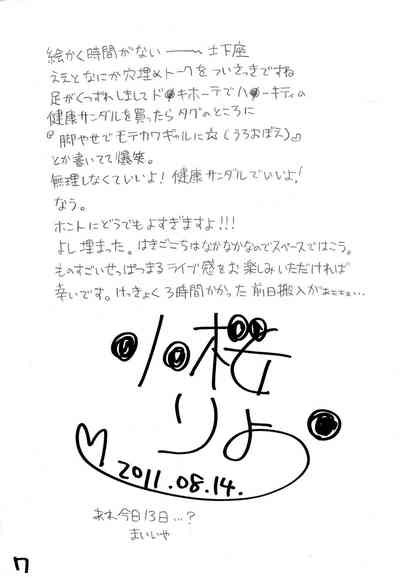 絵かく時間がない━━土下座
ええとなにか穴埋めトークを ついさっきですね
足がくつずれしまして ド●キホーテでハ●ーキティの
健康サンダルを買ったら タグのところに
"脚やせでモテカワギャルに☆(うろおぼえ)♡
とか書いてて爆笑。
無理しなくていいよ! 健康サンダルでいいよ!
なう。
ホントにどうでもよすぎますよ!!!
よし埋まった。はきごこちはなかなかなのでスペースではこう。
ものすごいせっぱつまるライブ感をお楽しみいただければ
幸いです。けっきょく3時間かかった 前日搬入がぁぁぁぁ…
小桜
りよ
2011.08.14.
あれ 今日13日…?
まいいや
7